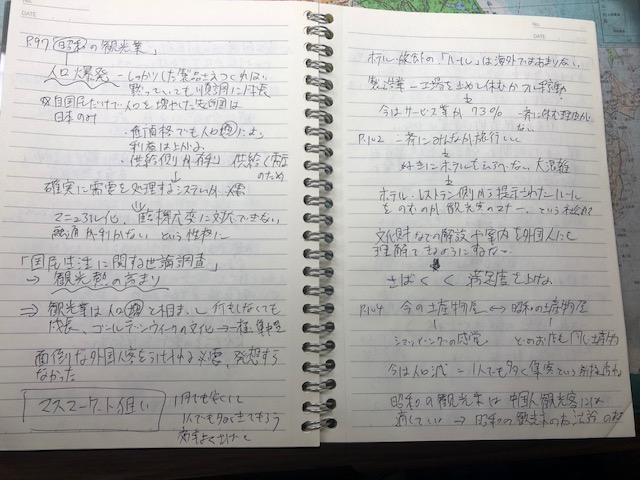 DATE
P.97 「昭和の観光業」
人口爆発 - しっかりした製品さえつくれば
黙っていても順調に成長
※自国民だけで人口を増やした先進国は
日本のみ
・低価格でも人口増により
利益は上がる。
・供給側が有利 供給<需要
のため
確実に需要を処理するシステムが必要
マニュアル化、臨機応変に対応できない
融通が利かない という性格に
「国民生活に関する世論調査」
→ 観光熱の高まり
⇒ 観光業は人口増と相まって何もしなくても
成長、ゴールデンウィークの文化→一極集中型
面倒な外国人客を引き受ける必要、発想すら
なかった
マスマーケット狙い
1円でも安くして
1人でも多く来てもらう
NO.
DATE
ホテル・旅館の「ルール」は海外であまりない。
製造業 - 工場を止めて休むかフル稼動
今はサービス業が73% 一斉に休む理由が
ない
P.102 一斉にみんなが旅行して
好きにホテルもとれない 大混雑
ホテル・レストラン側から提示されたルール
をのむのが観光客のマナー、という
文化財などの解説や案内を外国人にも
理解できるようにするなど
きばくく 満足度を上げる
P.104 今の土産物屋 ↔ 昭和の土産物屋
ショッピングの感覚 どのお店も同じ土産物
今は人口減 = 1人でも多く集客という
昭和の観光業は中国人観光客には
適している → 昭和の観光業の